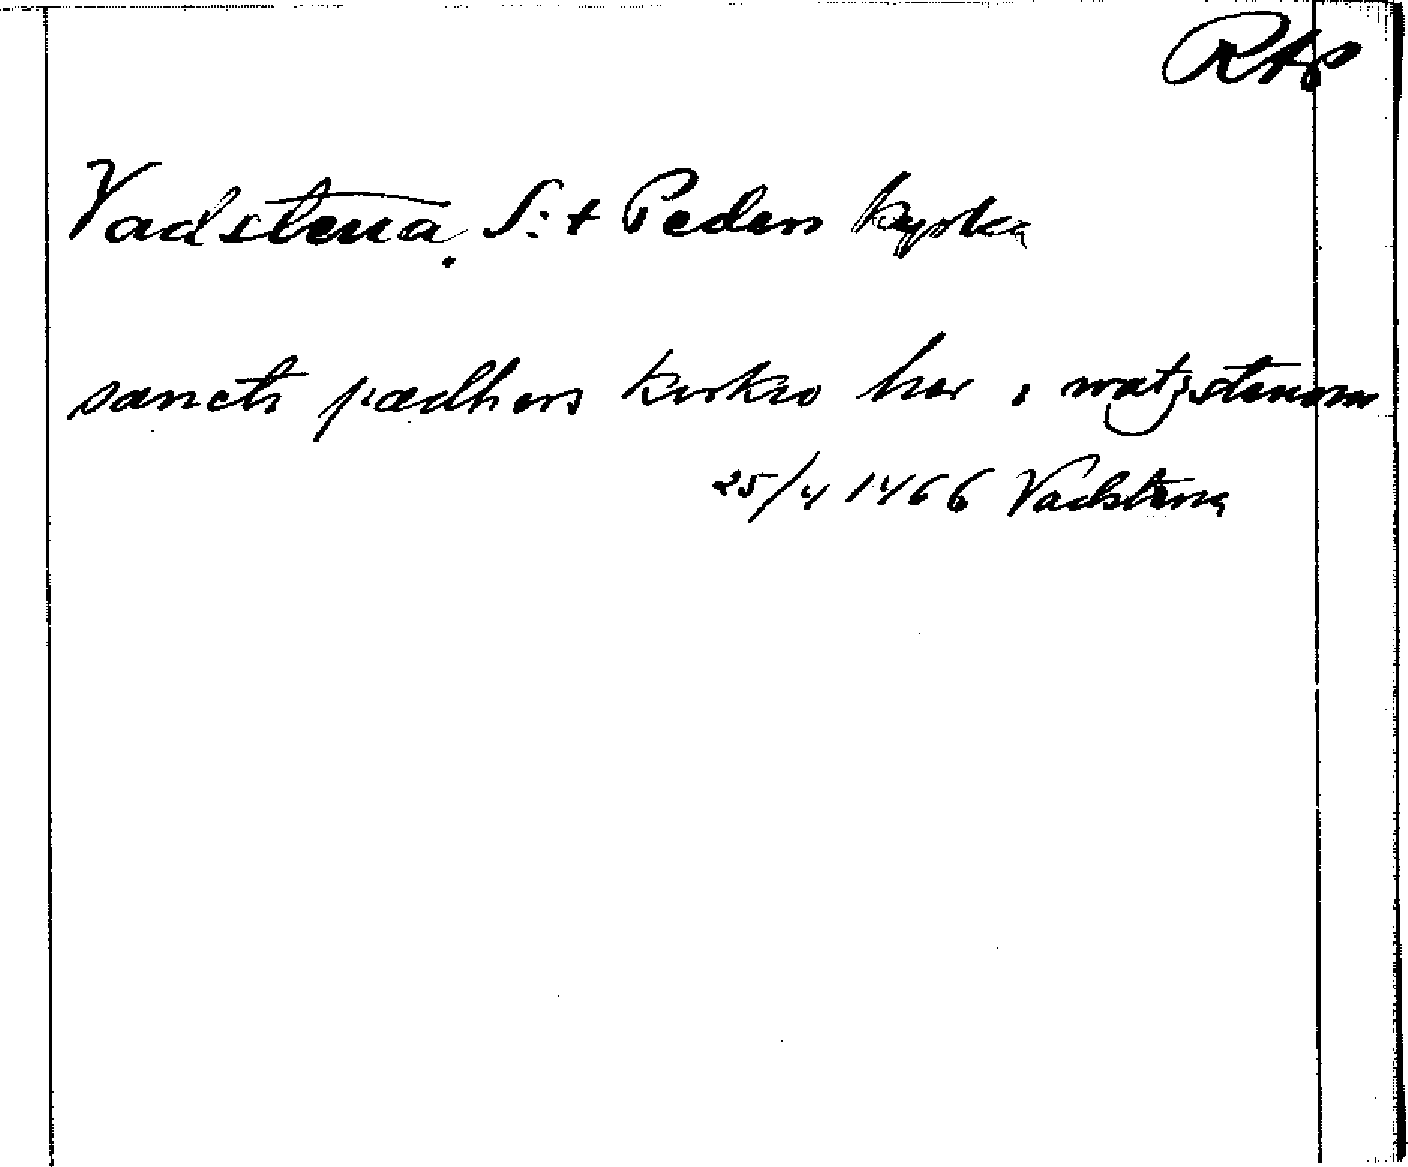 RAp
Vadstena. S:t Peders kyrka
sancti pædhers kirkio her i watzstenom
25/4 1466 Vadstena